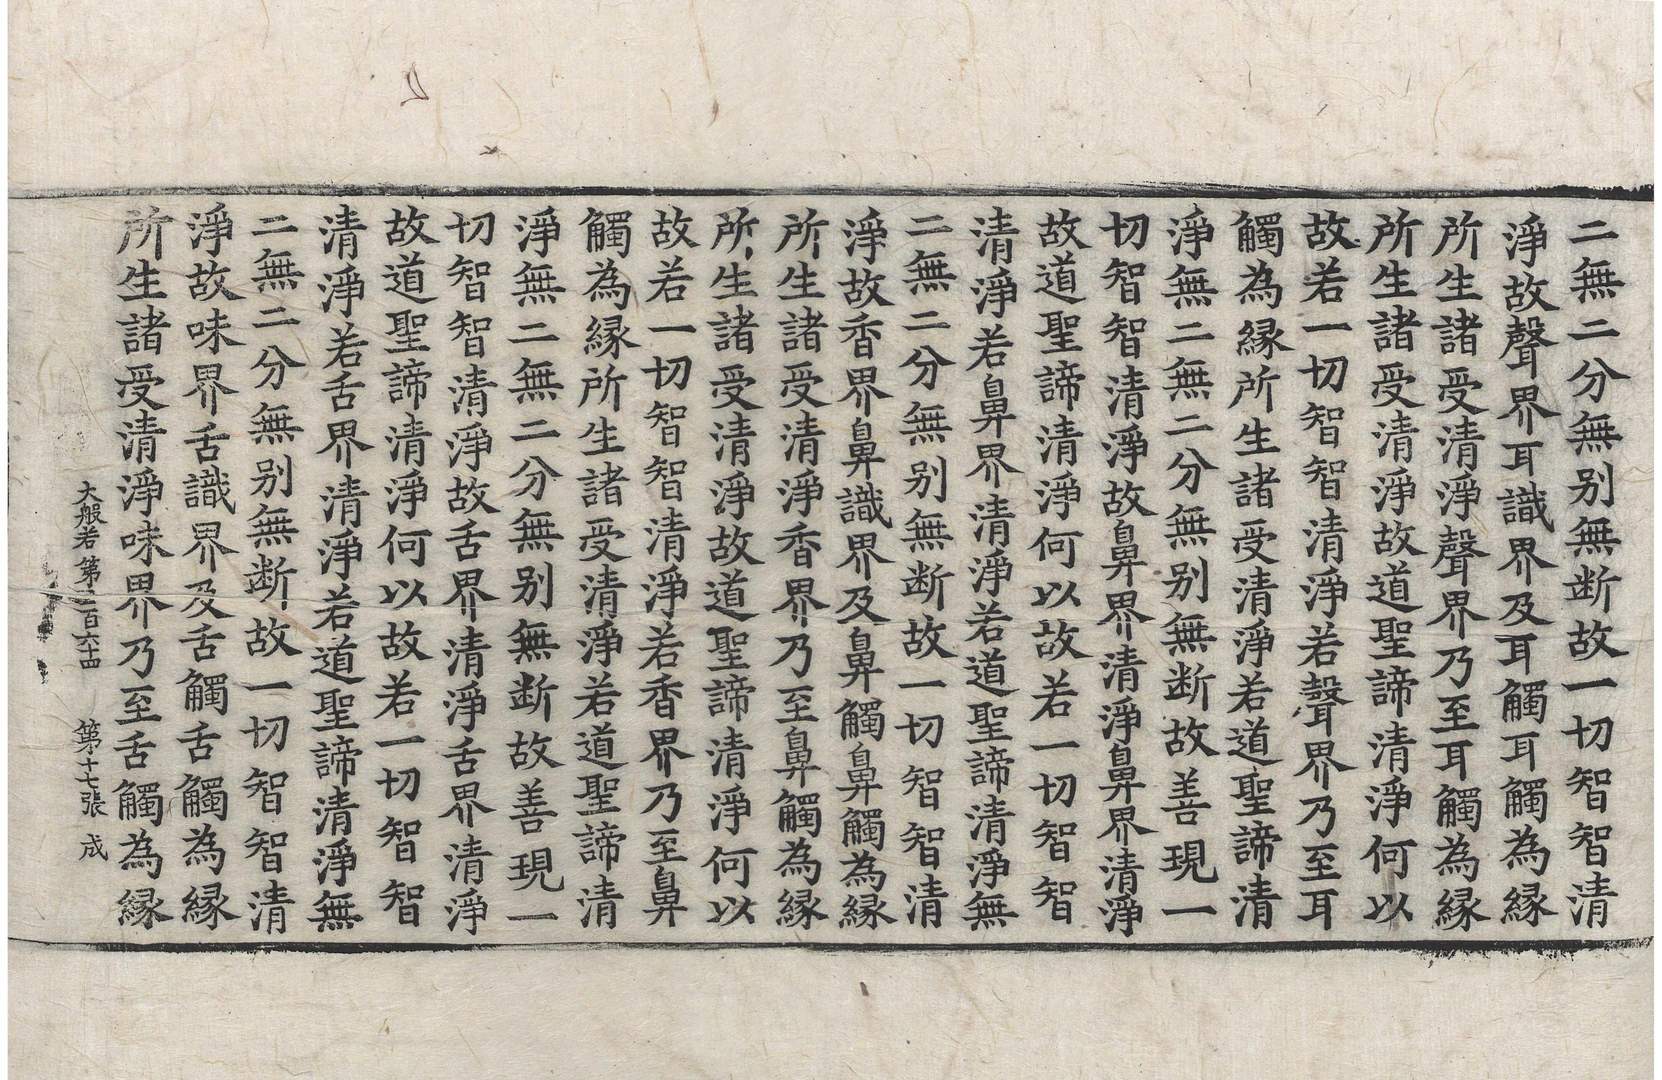 二無二分無别無断故一切智智清
淨故聲界耳識界及耳觸耳觸為縁
所生諸受清淨聲界乃至耳觸為縁
所生諸受清淨故道聖諦清淨何以
故若一切智智清淨若聲界乃至耳
觸為縁所生諸受清淨若道聖諦清
淨無二無二分無别無断故善現一
切智智清淨故鼻界清淨鼻界清淨
故道聖諦清淨何以故若一切智智
清淨若鼻界清淨若道聖諦清淨無
二無二分無别無断故一切智智清
淨故香界鼻識界及鼻觸鼻觸為縁
所生諸受清淨香界乃至鼻觸為縁
所生諸受清淨故道聖諦清淨何以
故若一切智智清淨若香界乃至鼻
觸為縁所生諸受清淨若道聖諦清
淨無二無二分無别無断故善現一
切智智清淨故舌界清淨舌界清淨
故道聖諦清淨何以故若一切智智
清淨若舌界清淨若道聖諦清淨無
二無二分無别無断故一切智智清
淨故味界舌識界及舌觸舌觸為縁
所生諸受清淨味界乃至舌觸為縁
大般若第二百六十四 第十七張